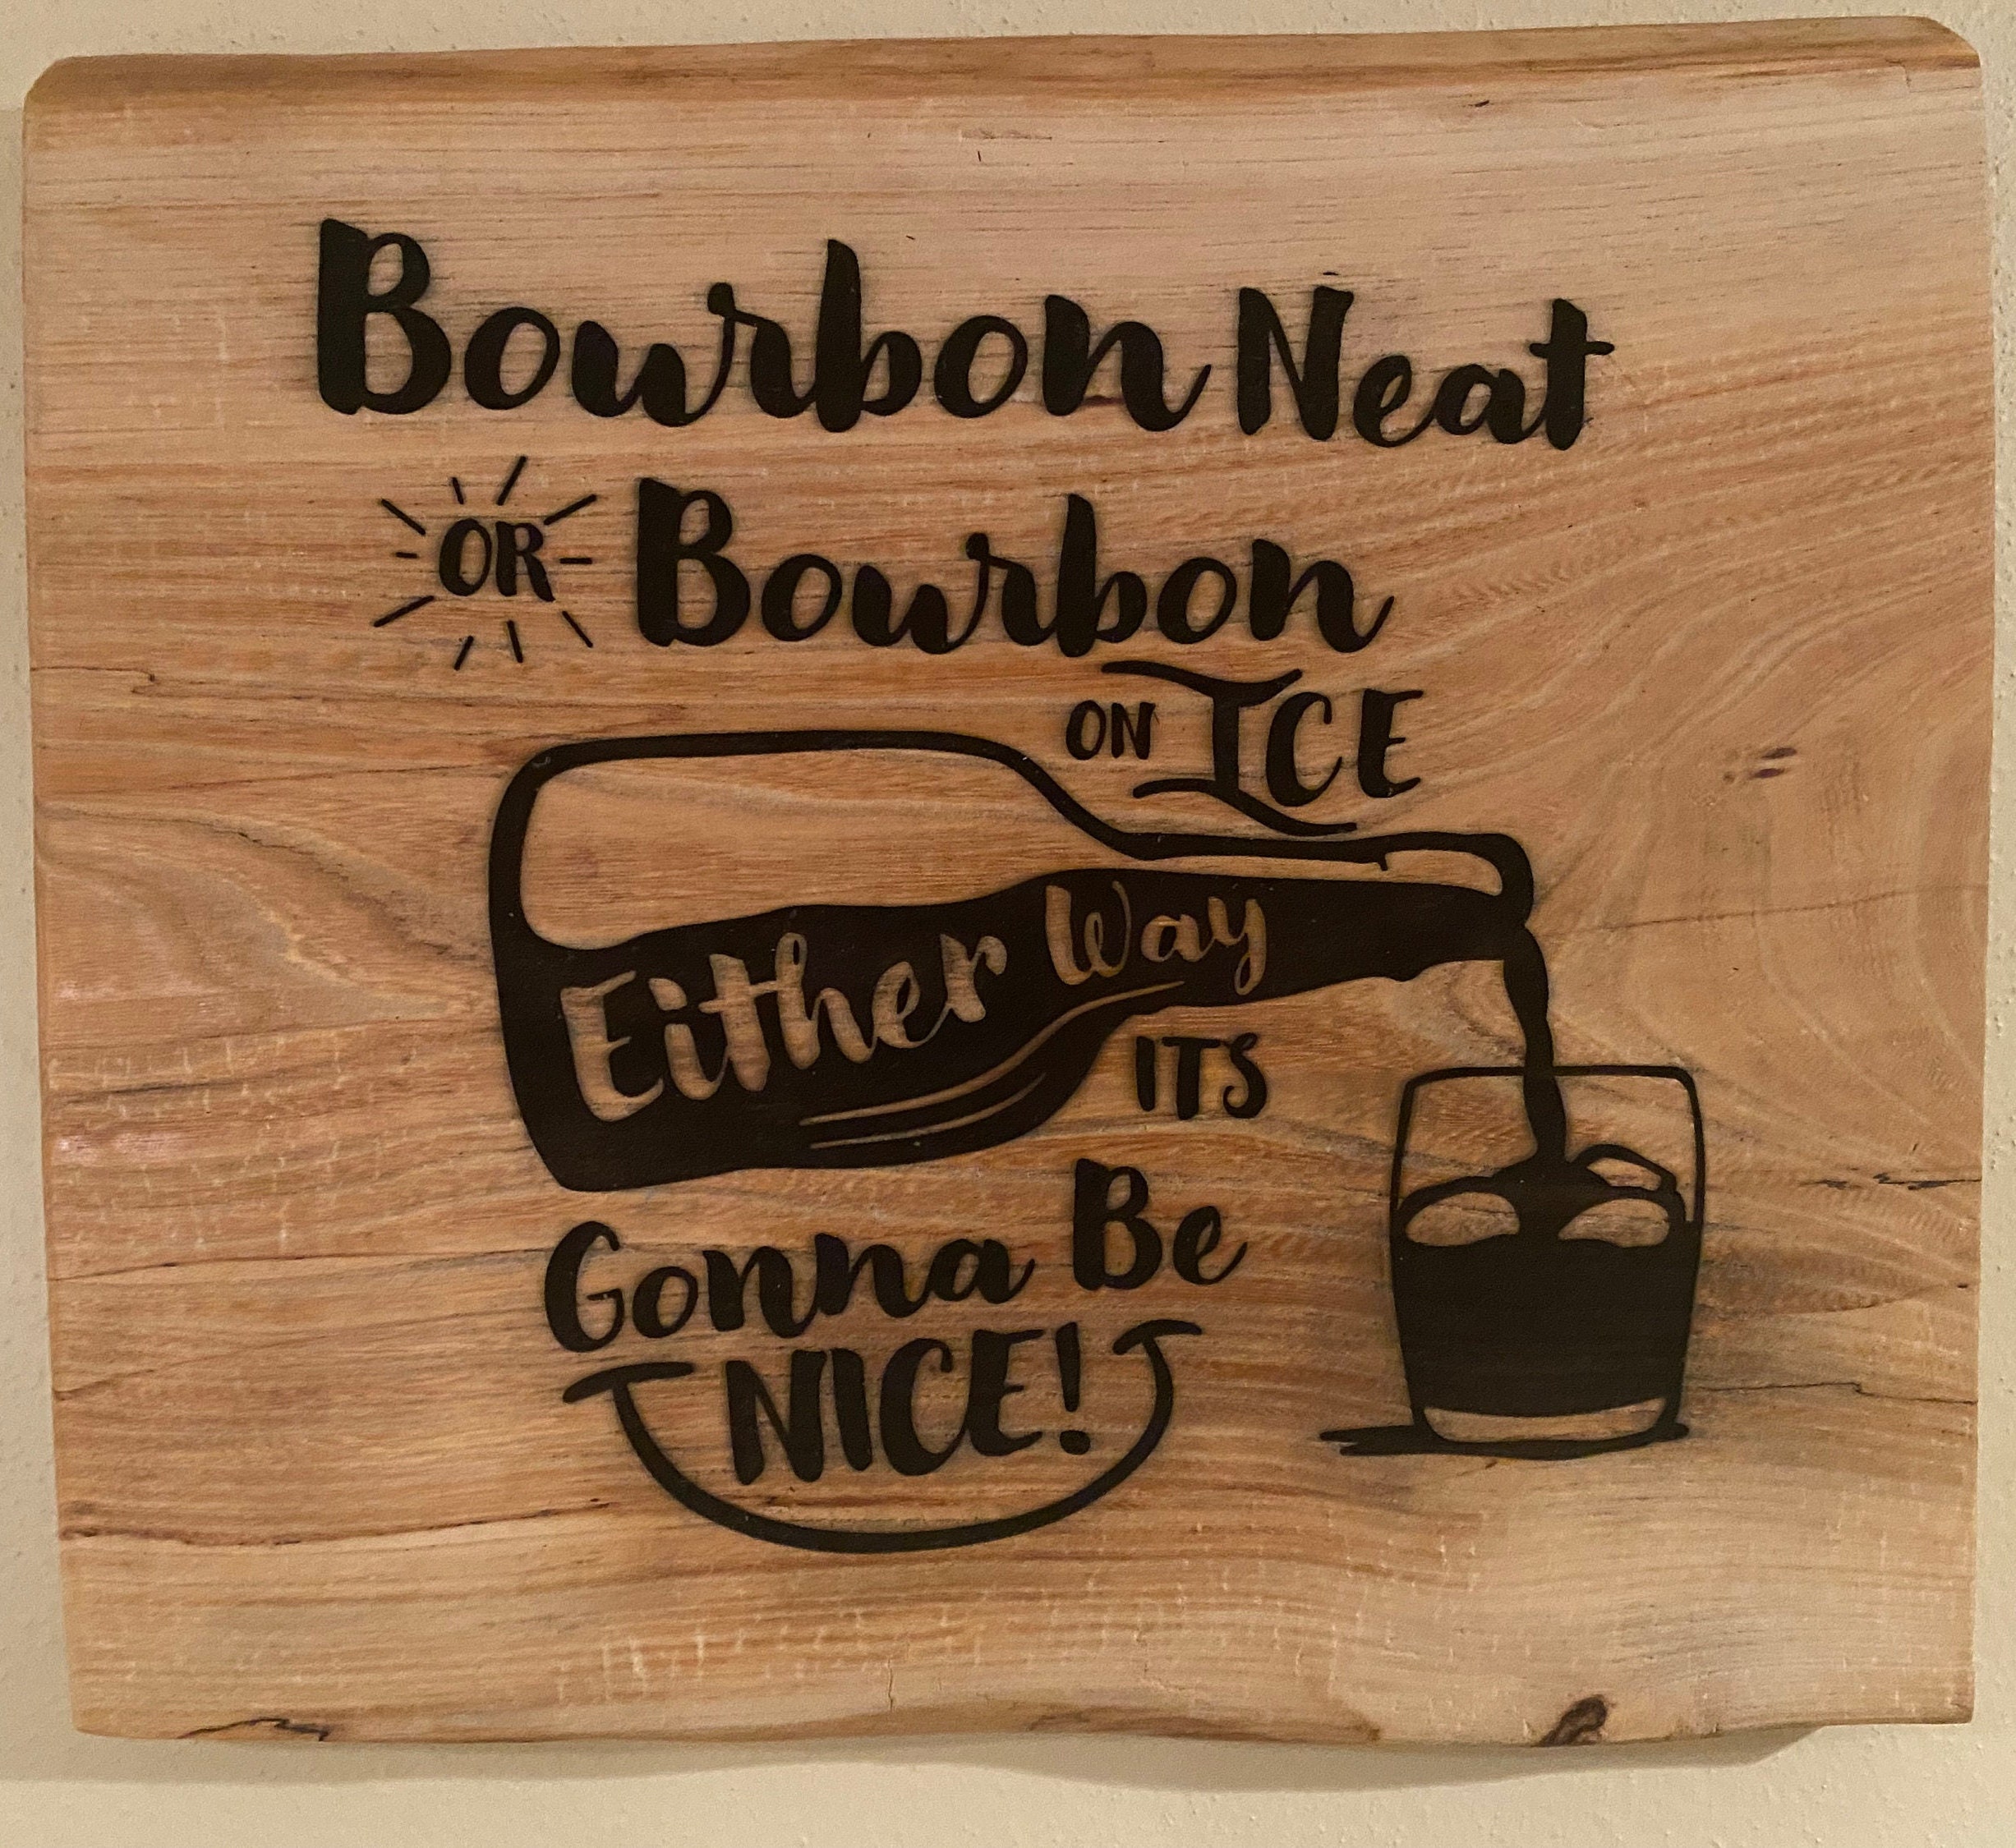 Bourbon Neat
OR Bourbon
ON ICE
Either Way
ITS
Gonna Be
NICE!